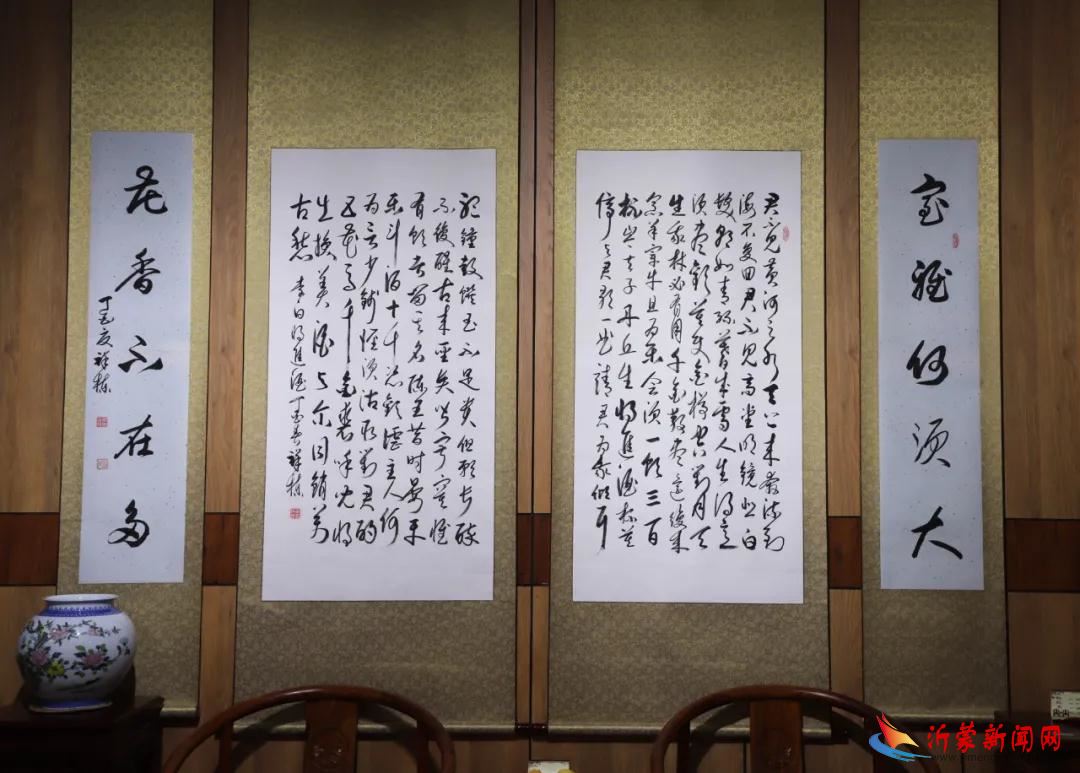 室雅何须大
君不见黄河之水天上来奔流到
海不复回君不见高堂明镜悲白
发朝如青丝暮成雪人生得意
须尽欢莫使金樽空对月天
生我材必有用千金散尽还复来
烹羊宰牛且为乐会须一饮三百
杯岑夫子丹丘生将进酒杯莫
停与君歌一曲请君为我倾耳
听鐘鼓馔玉不足贵但愿长醉
不復醒古来圣贤皆寂寞惟
有饮者留其名陈王昔时宴平
乐斗酒十千恣欢谑主人何
为言少钱径须沽取对君酌
五花马千金裘呼儿将
出换美酒与尔同销万
古愁 李白将进酒丁酉春祥栋
花香不在多
丁酉夏祥栋
沂蒙新闻网